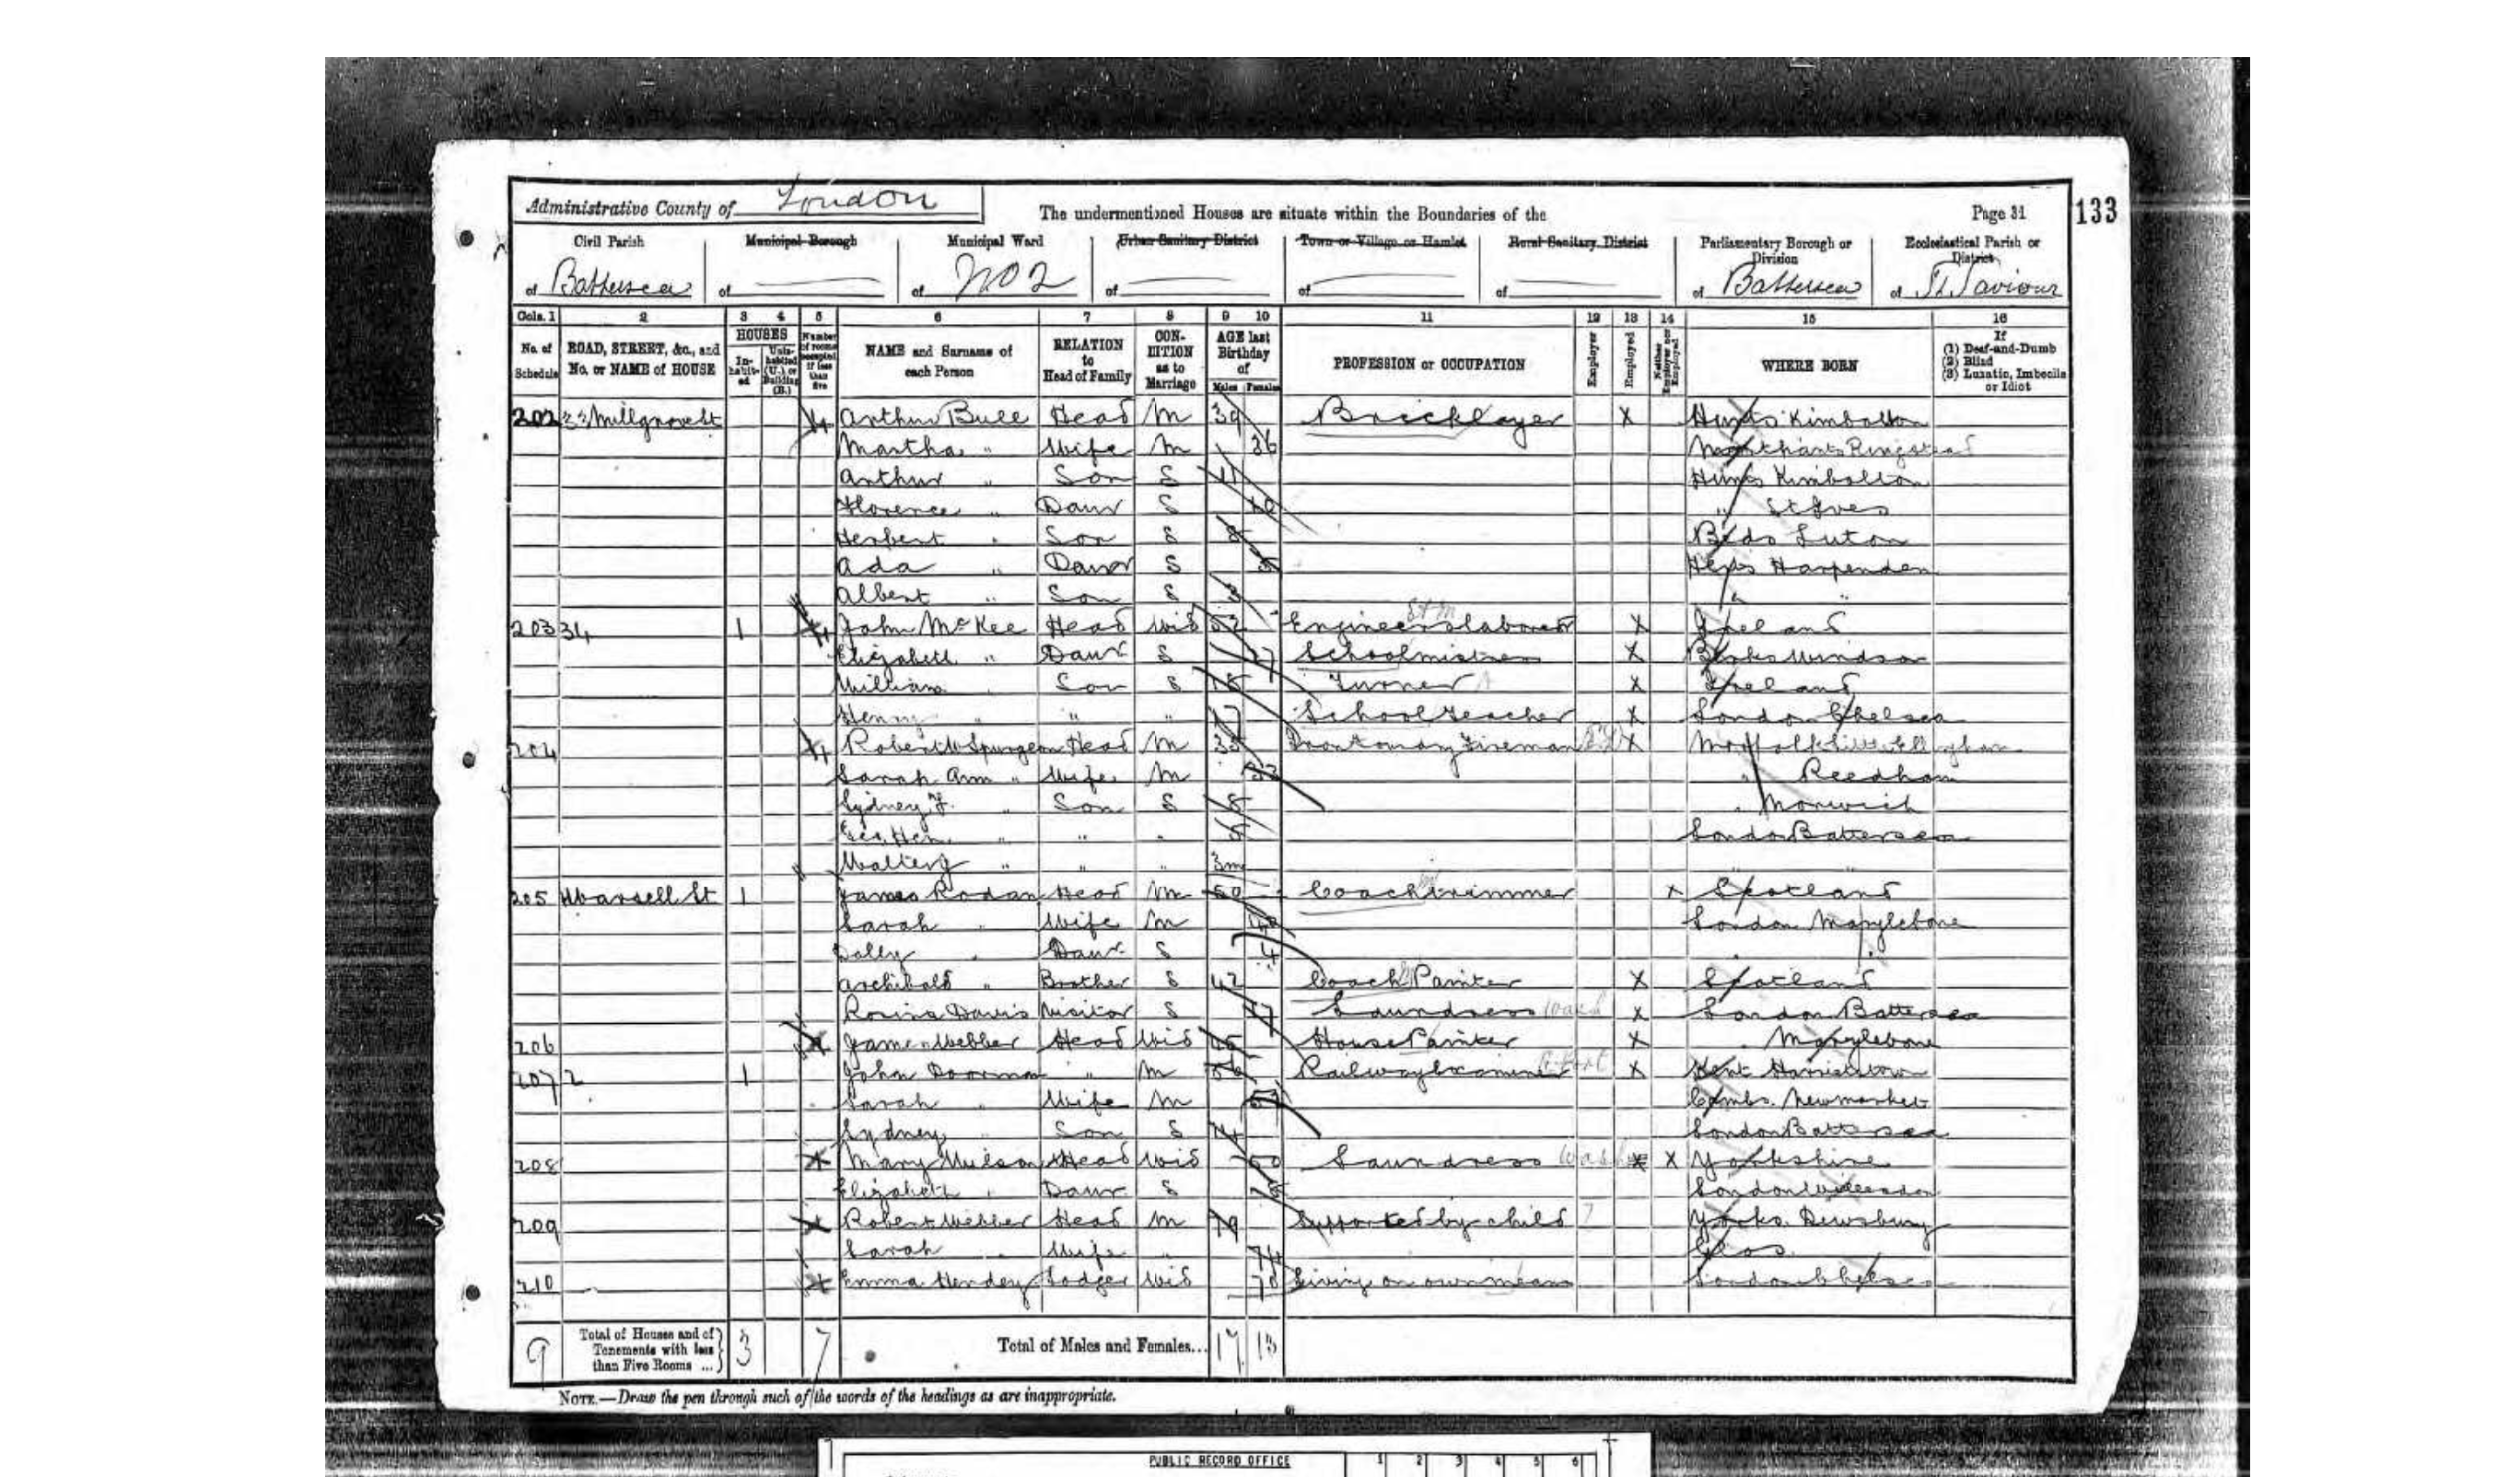 Administrative County of London
The undermentioned Houses are situate within the Boundaries of the
Page 31
133
Civil Parish of Battersea
Municipal Borough of
Municipal Ward of No 2
Urban Sanitary District of
Town or Village or Hamlet of
Rural Sanitary District of
Parliamentary Borough or Division of Battersea
Ecclesiastical Parish or District of St Saviour
Cols. 1 2 3 4 5 6 7 8 9 10 11 12 13 14 15 16
No. of Schedule
ROAD, STREET, &c., and No. or NAME of HOUSE
HOUSES
In-habit-ed
Unin-habited (U.) or Building (B.)
Number of rooms occupied if less than five
NAME and Surname of each Person
RELATION to Head of Family
CON-DITION as to Marriage
AGE last Birthday of
Males Females
PROFESSION or OCCUPATION
Employer
Employed
Neither Employer nor Employed
WHERE BORN
If (1) Deaf-and-Dumb (2) Blind (3) Lunatic, Imbecile or Idiot
202 33 Millgrove St 4 Arthur Bull Head M 39 Bricklayer X Hunts Kimbolton
Martha " Wife M 36 Northants Ringstead
Arthur " Son S 11 Hunts Kimbolton
Florence " Daur S 10 " St Ives
Herbert " Son S 8 Beds Luton
Ada " Daur S Herts Harpenden
Albert " Son S " "
203 34 1 4 John McKee Head Wid Engineers labourer X Ireland
Elizabeth " Daur S Schoolmistress X Berks Windsor
William Son S 18 Turner X Ireland
Henry " " " School teacher X London Chelsea
204 4 Robert W Spurgeon Head M 35 Fireman X Norfolk
Sarah Ann " Wife M 33 " Reedham
Sydney F. " Son S 8 " Norwich
Geo. Hen. " " " 5 London Battersea
Walter G " " " 3m " "
205 Warsell St 1 James Rodan Head M 50 Coach trimmer X Scotland
Sarah " Wife M London Marylebone
Dolly " Daur S 4 " "
Archibald " Brother S 42 Coach Painter X Scotland
Rosina Davis Visitor S 17 Laundress Wash X London Battersea
206 James Webber Head Wid 45 House Painter X " Marylebone
207 2 1 John Doorman " M 56 Railway Examiner X Kent
Sarah " Wife M Cambs. Newmarket
Sydney Son S 14 London Battersea
208 Mary Wilson Head Wid Laundress Wash X X Yorkshire
Elizabeth " Daur S London Willesden
209 Robert Webber Head M 79 Supported by child Yorks. Dewsbury
Sarah Wife " 74 Glos.
210 Emma Hendey Lodger Wid Living on own means London Chelsea
9 Total of Houses and of Tenements with less than Five Rooms ... 3 7 Total of Males and Females... 17 13
NOTE.—Draw the pen through such of the words of the headings as are inappropriate.
PUBLIC RECORD OFFICE 1 2 3 4 5 6